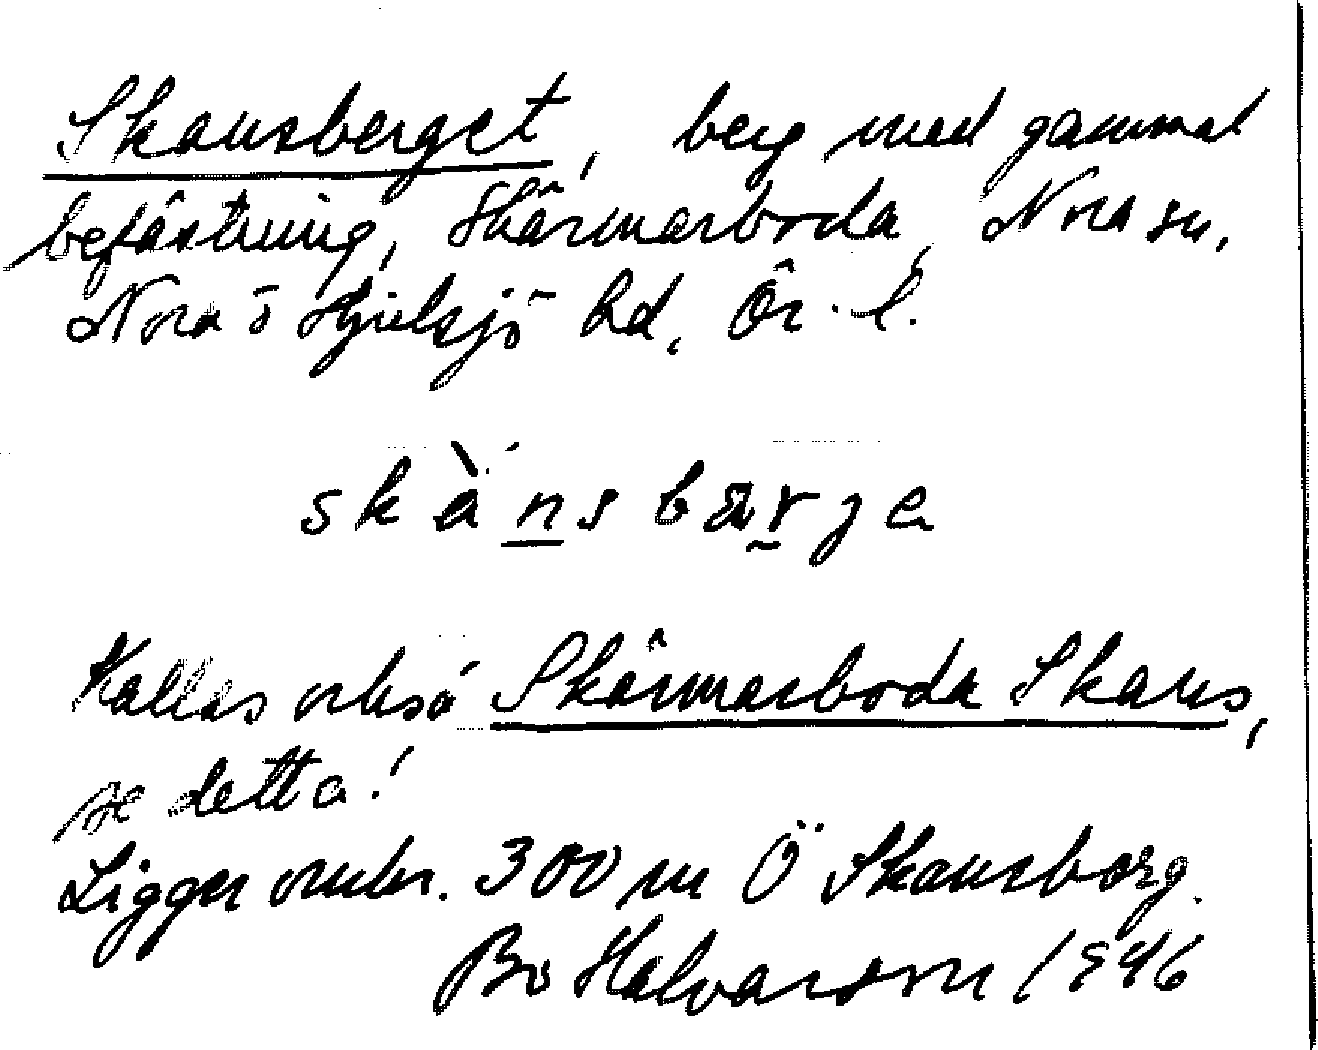 Skansberget, berg med gammal
befästning, Skärmarboda, Nora sn,
Nora o Hjulsjö hd, Ör. l.
skànsbärje
Kallas också Skärmarboda Skans,
se detta!
Ligger omkr. 300 m Ö Skansborg.
Bo Halvarson 1946